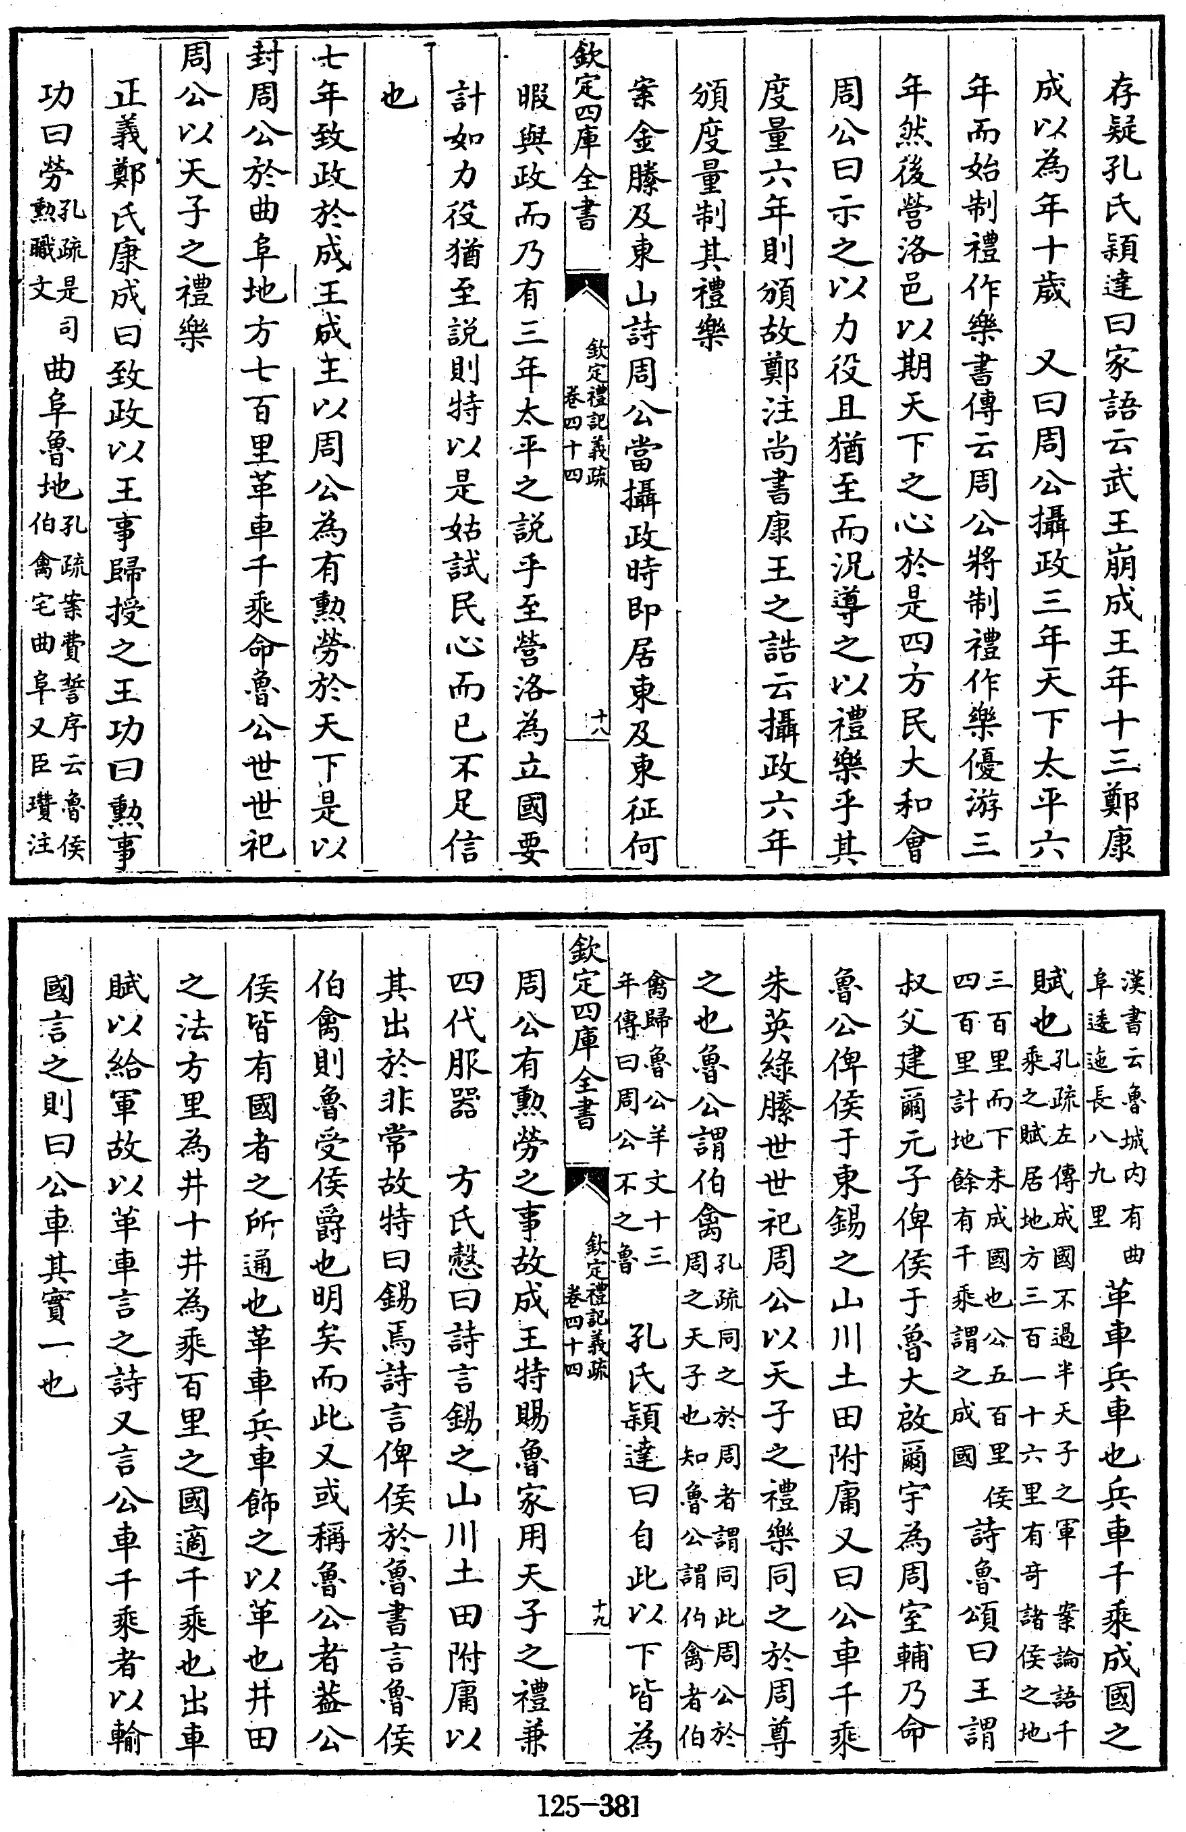 存疑孔氏穎達曰家語云武王崩成王年十三鄭康
成以為年十歲　又曰周公攝政三年天下太平六
年而始制禮作樂書傳云周公將制禮作樂優游三
年然後營洛邑以期天下之心於是四方民大和會
周公曰示之以力役且猶至而況導之以禮樂乎其
度量六年則頒故鄭注尚書康王之誥云攝政六年
頒度量制其禮樂
案金縢及東山詩周公當攝政時即居東及東征何
欽定四庫全書
欽定禮記義疏
卷四十四
十八
暇與政而乃有三年太平之說乎至營洛為立國要
計如力役猶至説則特以是姑試民心而已不足信
也
七年致政於成王成王以周公為有勲勞於天下是以
封周公於曲阜地方七百里革車千乘命魯公世世祀
周公以天子之禮樂
正義鄭氏康成曰致政以王事歸授之王功曰勲事
功曰勞孔疏是司勲職文曲阜魯地孔疏案費誓序云魯侯伯禽宅曲阜又臣瓚注
漢書云魯城內有曲阜逶迤長八九里革車兵車也兵車千乘成國之
賦也孔疏左傳成國不過半天子之軍　案論語千乘之賦居地方三百一十六里有奇諸侯之地
三百里而下未成國也公五百里侯四百里計地餘有千乘謂之成國詩魯頌曰王謂
叔父建爾元子俾侯于魯大啟爾宇為周室輔乃命
魯公俾侯于東錫之山川土田附庸又曰公車千乘
朱英綠縢世世祀周公以天子之禮樂同之於周尊
之也魯公謂伯禽孔疏同之於周者謂同此周公於周之天子也知魯公謂伯禽者伯
禽歸魯公羊文十三年傳曰周公不之魯　孔氏穎達曰自此以下皆為
欽定四庫全書
欽定禮記義疏
卷四十四
十九
周公有勲勞之事故成王特賜魯家用天子之禮兼
四代服器　方氏慤曰詩言錫之山川土田附庸以
其出於非常故特曰錫焉詩言俾侯於魯書言魯侯
伯禽則魯受侯爵也明矣而此又或稱魯公者葢公
侯皆有國者之所通也革車兵車飾之以革也井田
之法方里為井十井為乘百里之國適千乘也出車
賦以給軍故以革車言之詩又言公車千乘者以輸
國言之則曰公車其實一也
125-381